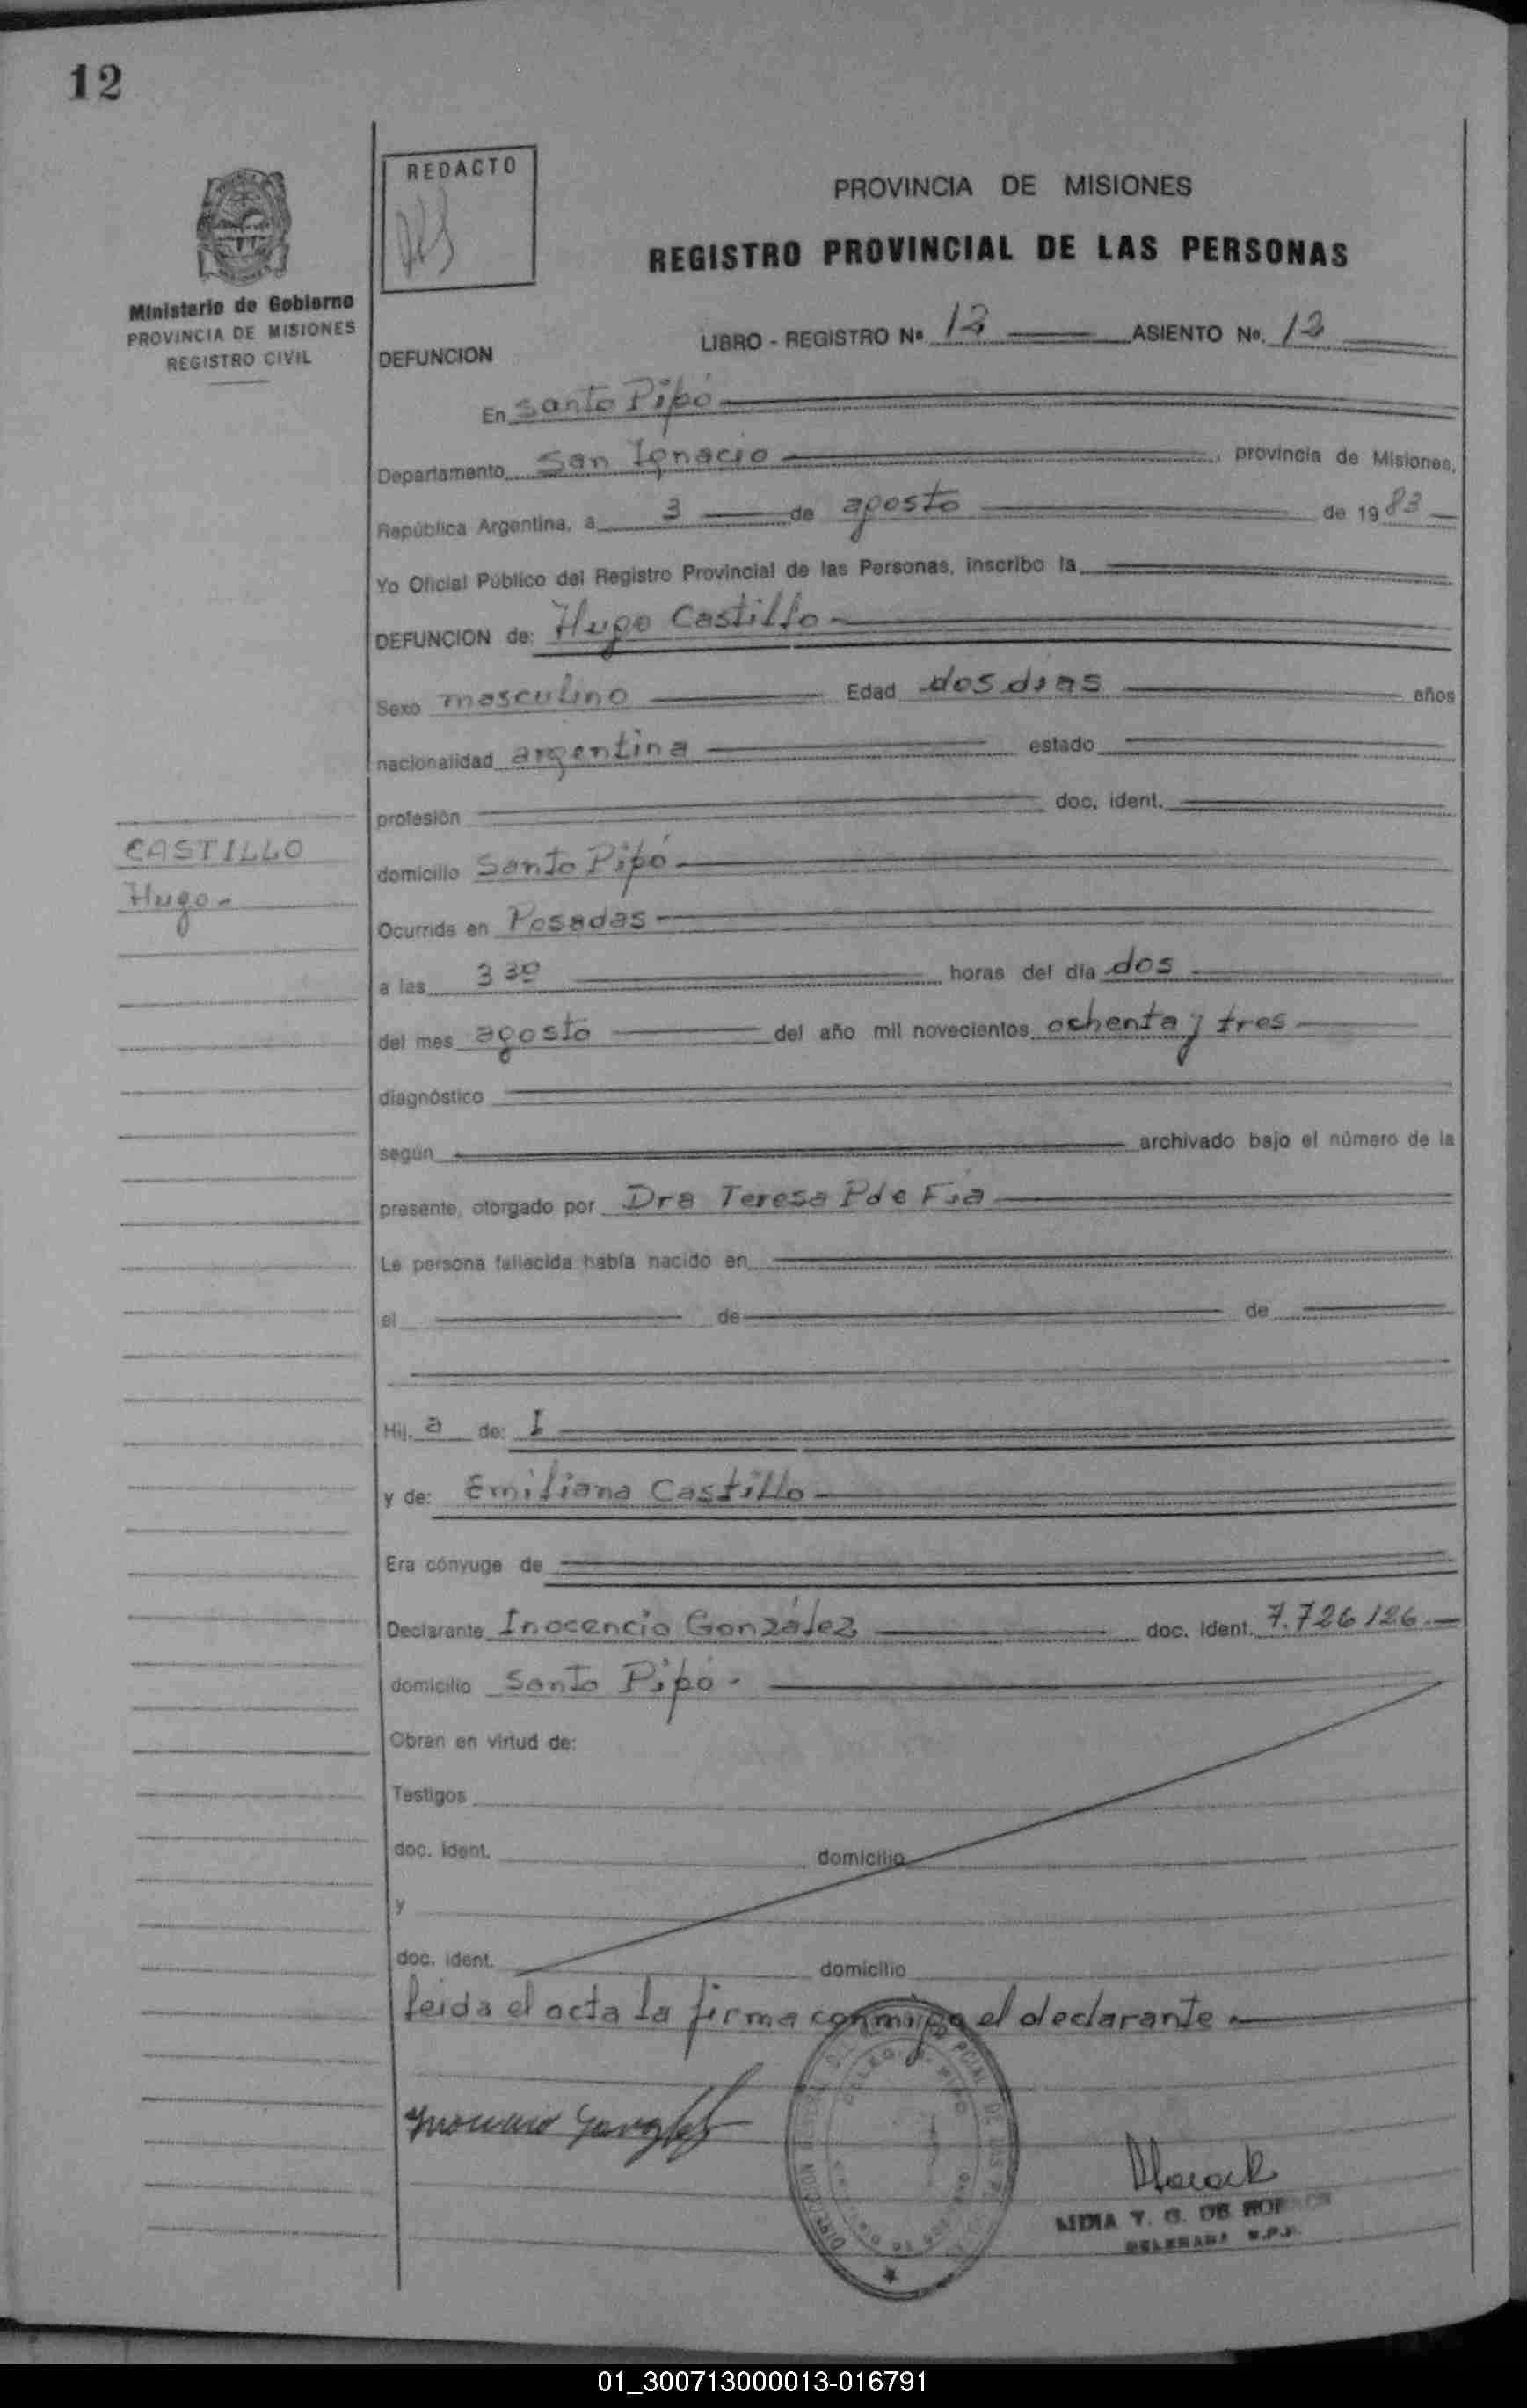 12
REDACTO
PROVINCIA DE MISIONES
REGISTRO PROVINCIAL DE LAS PERSONAS
Ministerio de Gobierno
PROVINCIA DE MISIONES
REGISTRO CIVIL
LIBRO - REGISTRO Nº 12 ASIENTO Nº. 12
DEFUNCION
En Santo Pipó
Departamento San Ignacio, provincia de Misiones,
República Argentina, a 3 de agosto de 1983
Yo Oficial Público del Registro Provincial de las Personas, inscribo la
DEFUNCION de: Hugo Castillo
Sexo masculino Edad dos dias años
nacionalidad argentina estado
profesión doc. ident.
CASTILLO
Hugo-
domicilio Santo Pipó
Ocurrida en Posadas
a las 3 30 horas del día dos
del mes agosto del año mil novecientos ochenta y tres
diagnóstico
según archivado bajo el número de la
presente, otorgado por Dra Teresa P de
La persona fallecida había nacido en
el de de
Hij a de: I
y de: Emiliana Castillo
Era cónyuge de
Declarante Inocencio González doc. ident. 7.726126.
domicilio Santo Pipó.
Obran en virtud de:
Testigos
doc. ident. domicilio
y
doc. ident. domicilio
leida el acta la firma conmigo el declarante
LIDIA T. G. DE
01_300713000013-016791